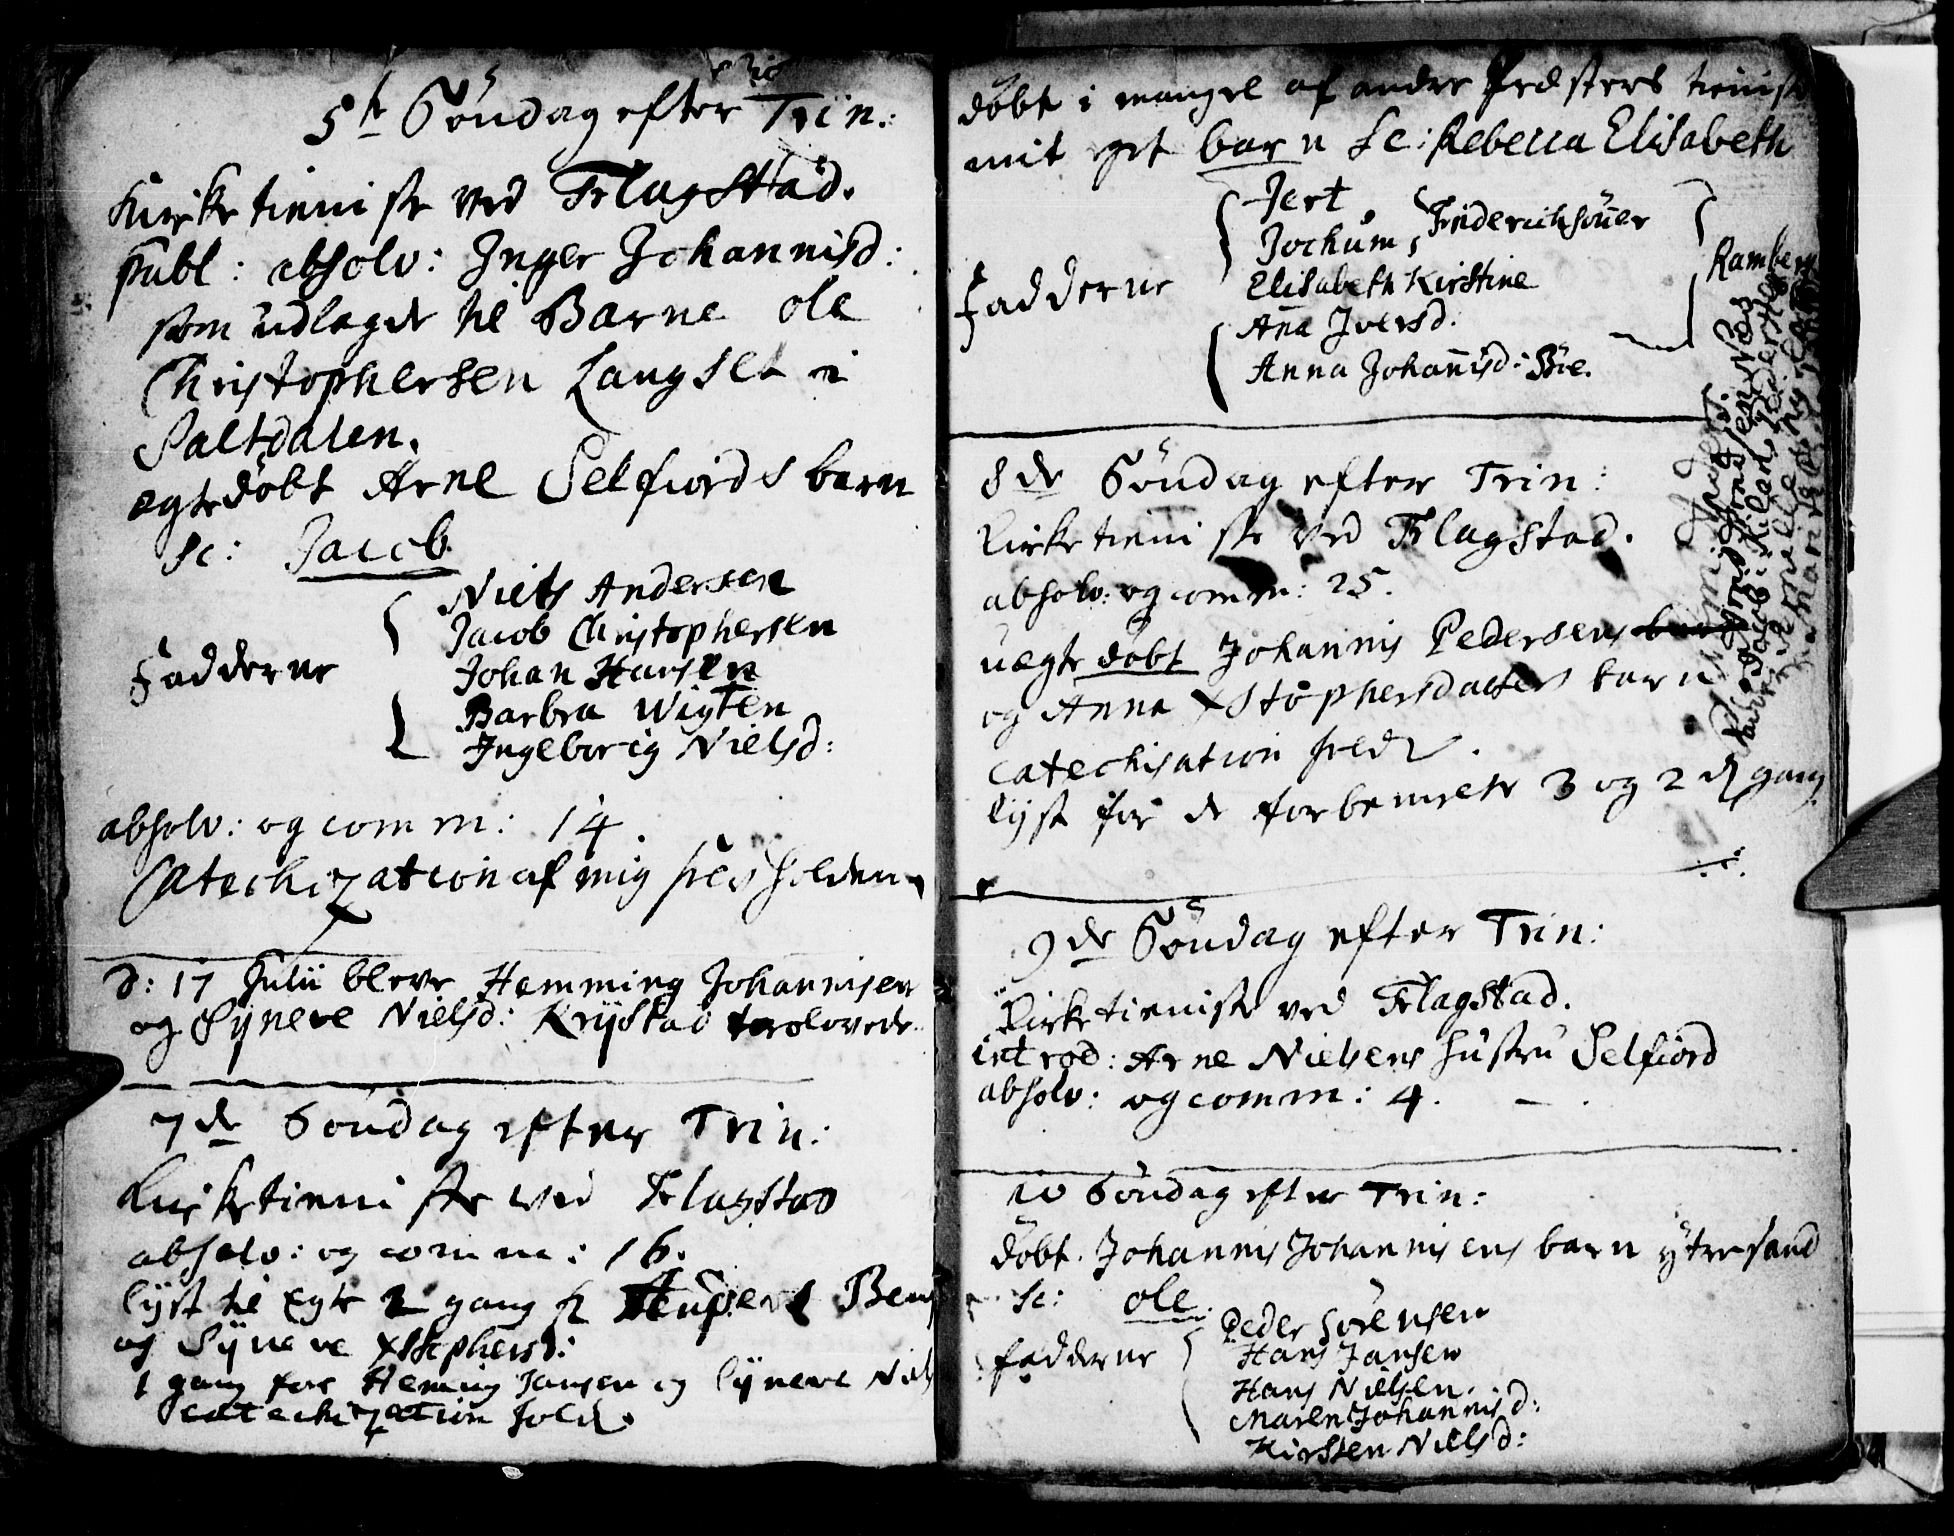 5te Söndag efter Trin:
Kirke tieniste ved Flagstad.
publ: absolv: Inger Johannisd:
som udlagde til Barne Ole
Christophersen Langset i
Saltdalen.
ægte döbt Arne Selfiords barn
sc: Jacob
Niels Andersen
Jacob Christophersen
Johan Hansen
Fadderne
Barbra Wigten
Ingeborig Nielsd:
absolv: og comm: 14.
Catechization af mig holden
d: 17 Julii bleve Hemming Johannisen
og Syneve Nielsd: Krystad trolovede
7de Söndag efter Trin:
Kirketieniste ved Flagstad
absolv: og comm: 16.
lyst til Egte 2 gang
og Syneve Xstophersd:
1 gang for Heming Jansen og Syneve Niels
catechization hold.
döbt i mangel af andre Præsters tienist
mit eget barn sc: Rebecca Elisabeth
Jert
Jochum, Friderichsöner
Fadderne
Elisabeth Kirstine
Ramberg
Anna Iversd.
Anna Johannisd: Böe.
8de Söndag efter Trin:
Kirke tieniste ved Flagstad.
absolv: og comm: 25.
uægte döbt Johannis Pedersens
og Anna Xstophersdatters barn
catechisation
lyst for de forbemelte 3 og 2 gang
9de Söndag efter Trin:
Kirke tieniste ved Flagstad.
introd: Arne Nielsens hustru Selfiord
absolv: og comm: 4.
10 Söndag efter Trin:
döbt Johannis Johannisens barn ytresand
sc: Ole
Peder Sörensen
fadderne
Hans Jansen
Hans Nielsen.
Maren Johannisd:
Kirsten Nielsd: